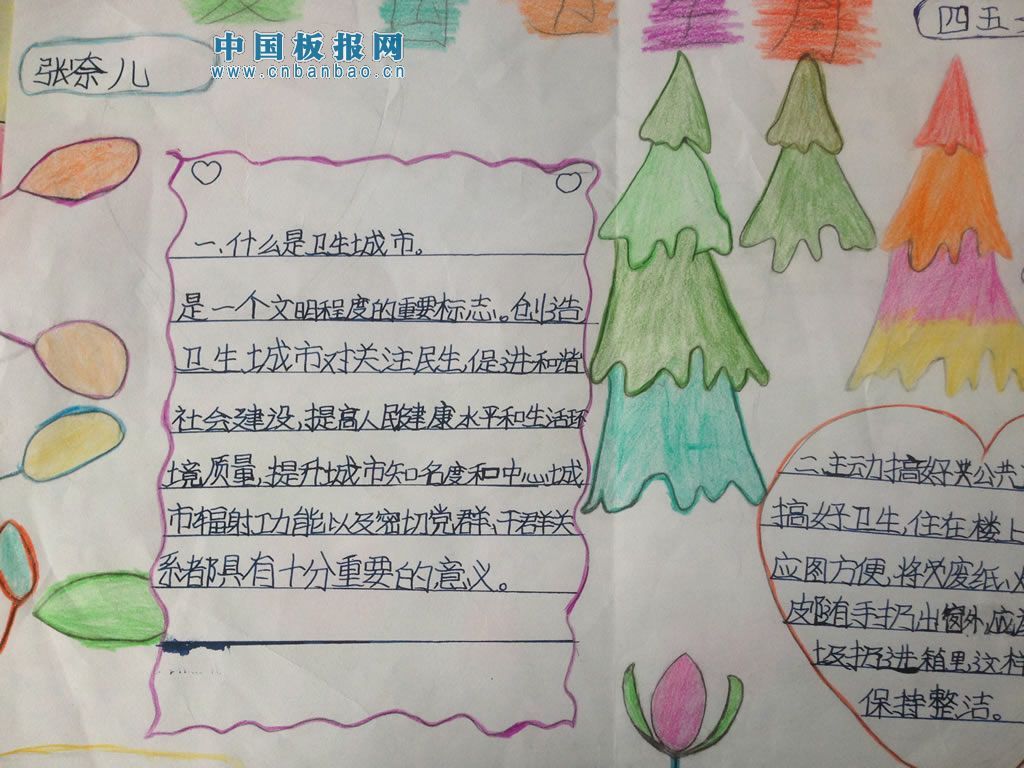 中国板报网
www.cnbanbao.cn
张奈儿
四五
一、什么是卫生城市。
是一个文明程度的重要标志。创造
卫生城市对关注民生,促进和谐
社会建设,提高人民健康水平和生活环
境质量,提升城市知名度和中心城
市辐射功能以及密切党群、干群关
系都具有十分重要的意义。
二、主动搞好公共
搞好卫生,住在楼上
应图方便,将废纸、
皮随手扔出窗外,应
圾扔进箱里这样
保持整洁。